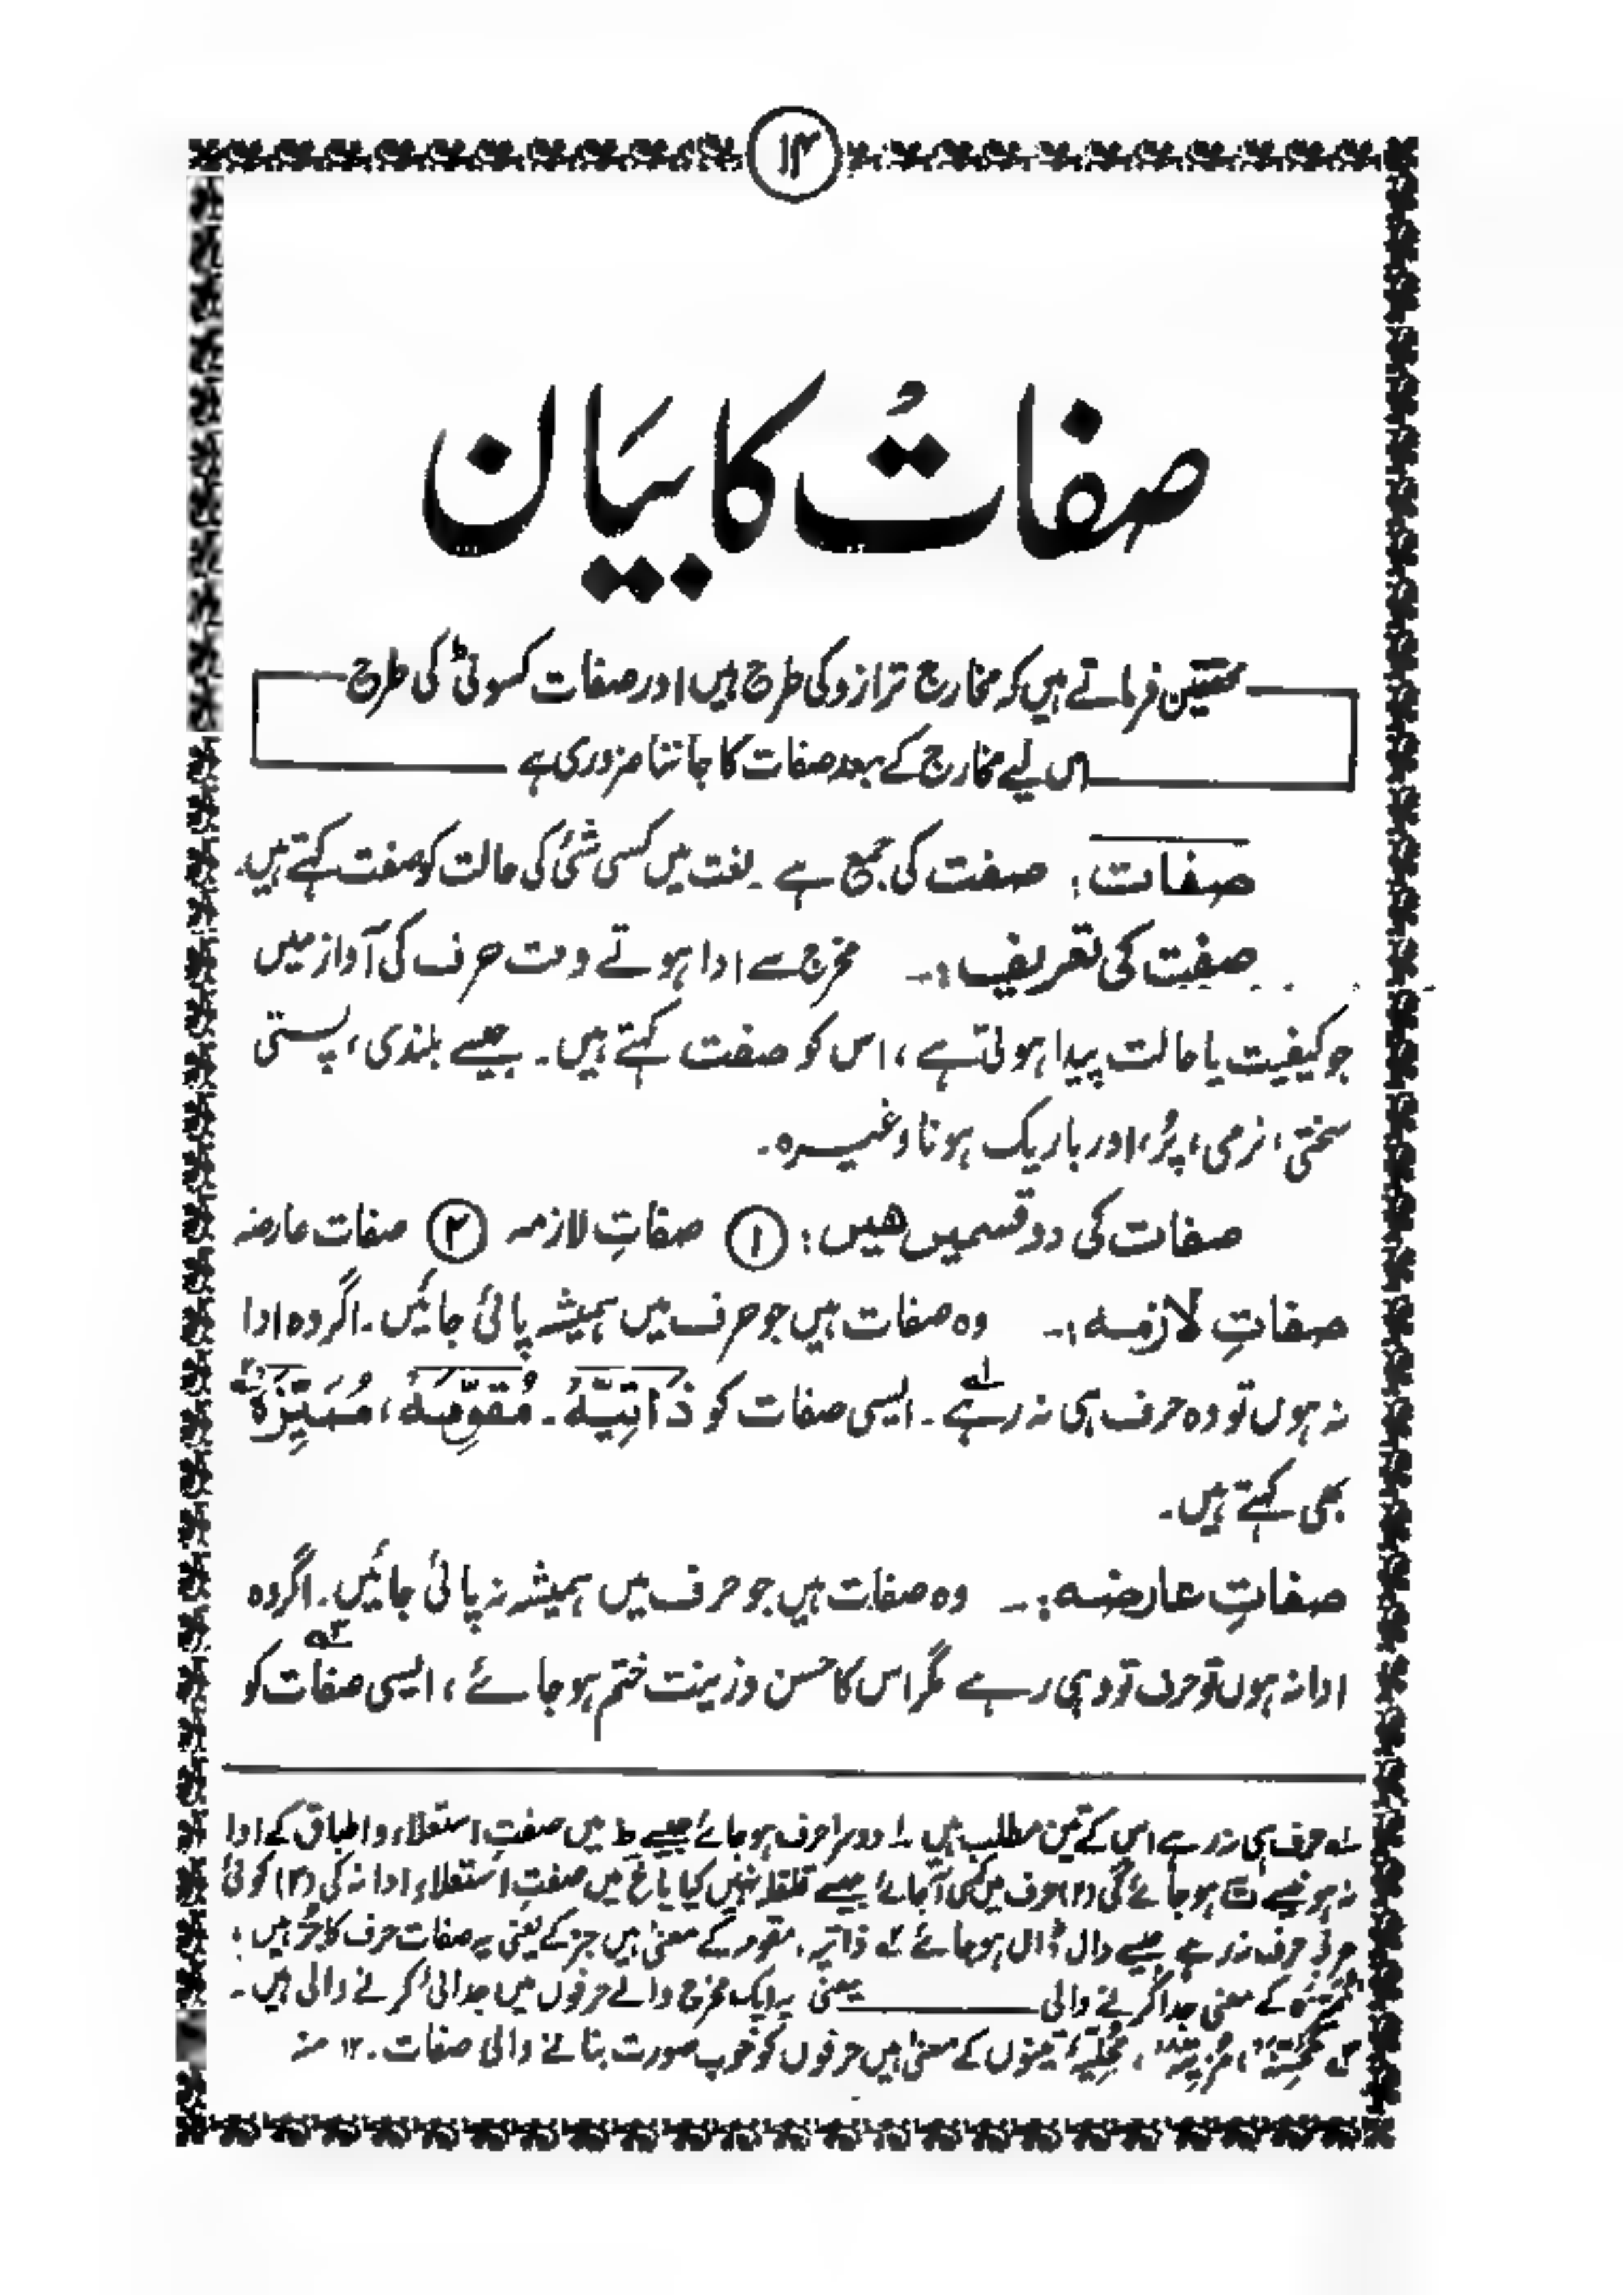 ۱۴
صفات کا بیان
محققین فرماتے ہیں کہ مخارج ترازو کی طرح ہیں اور صفات کسوٹی کی طرح
اس لیے مخارج کے بعد صفات کا جاننا ضروری ہے
صفات: صفت کی جمع ہے۔ لغت میں کسی شئ کی حالت کو صفت کہتے ہیں۔
صفت کی تعریف:۔ مخرج سے ادا ہوتے وقت حرف کی آواز میں
جو کیفیت یا حالت پیدا ہوتی ہے، اس کو صفت کہتے ہیں۔ جیسے بلندی، پستی
سختی، نرمی، پُر، اور باریک ہونا وغیرہ۔
صفات کی دو قسمیں ہیں: ① صفاتِ لازمہ ② صفات عارضہ
صفاتِ لازمہ:۔ وہ صفات ہیں جو حرف میں ہمیشہ پائی جائیں۔ اگر وہ ادا
نہ ہوں تو وہ حرف ہی نہ رہے ۱؎۔ ایسی صفات کو ذَاتِیَّہْ۔ مُقَوِّمَہْ، مُمَیِّزَہْ ۲؎
بھی کہتے ہیں۔
صفاتِ عارضہ:۔ وہ صفات ہیں جو حرف میں ہمیشہ نہ پائی جائیں۔ اگر وہ
ادا نہ ہوں تو حرف تو وہی رہے مگر اس کا حسن و زینت ختم ہو جائے، ایسی صفات ۳؎ کو
۱؎ حرف ہی نہ رہے اس کے تین مطلب ہیں ۱ دوسرا حرف ہو جائے جیسے ط میں صفتِ استعلاء و اطباق کے ادا
نہ ہو جیسے ت ہو جائے گی (۲) حرف میں کمی آ جائے جیسے قلقلہ نہیں کیا یا غ میں صفتِ استعلاء ادا نہ کی (۳) کوئی
عربی حرف نہ رہے جیسے دال ڈال ہو جائے ۲؎ ذاتیہ، مقومہ کے معنیٰ ہیں جز کے یعنی یہ صفات حرف کا جز ہیں؛
مُمَیِّزَہْ کے معنی جدا کرنے والی یعنی یہ ایک مخرج والے حرفوں میں جدائی کرنے والی ہیں۔
۳؎ مُحَسِّنَہ، مُزَیِّنَہ، مُحَلِّیَہ، تینوں کے معنیٰ ہیں حرفوں کو خوب صورت بنانے والی صفات۔ ۱۲ منہ